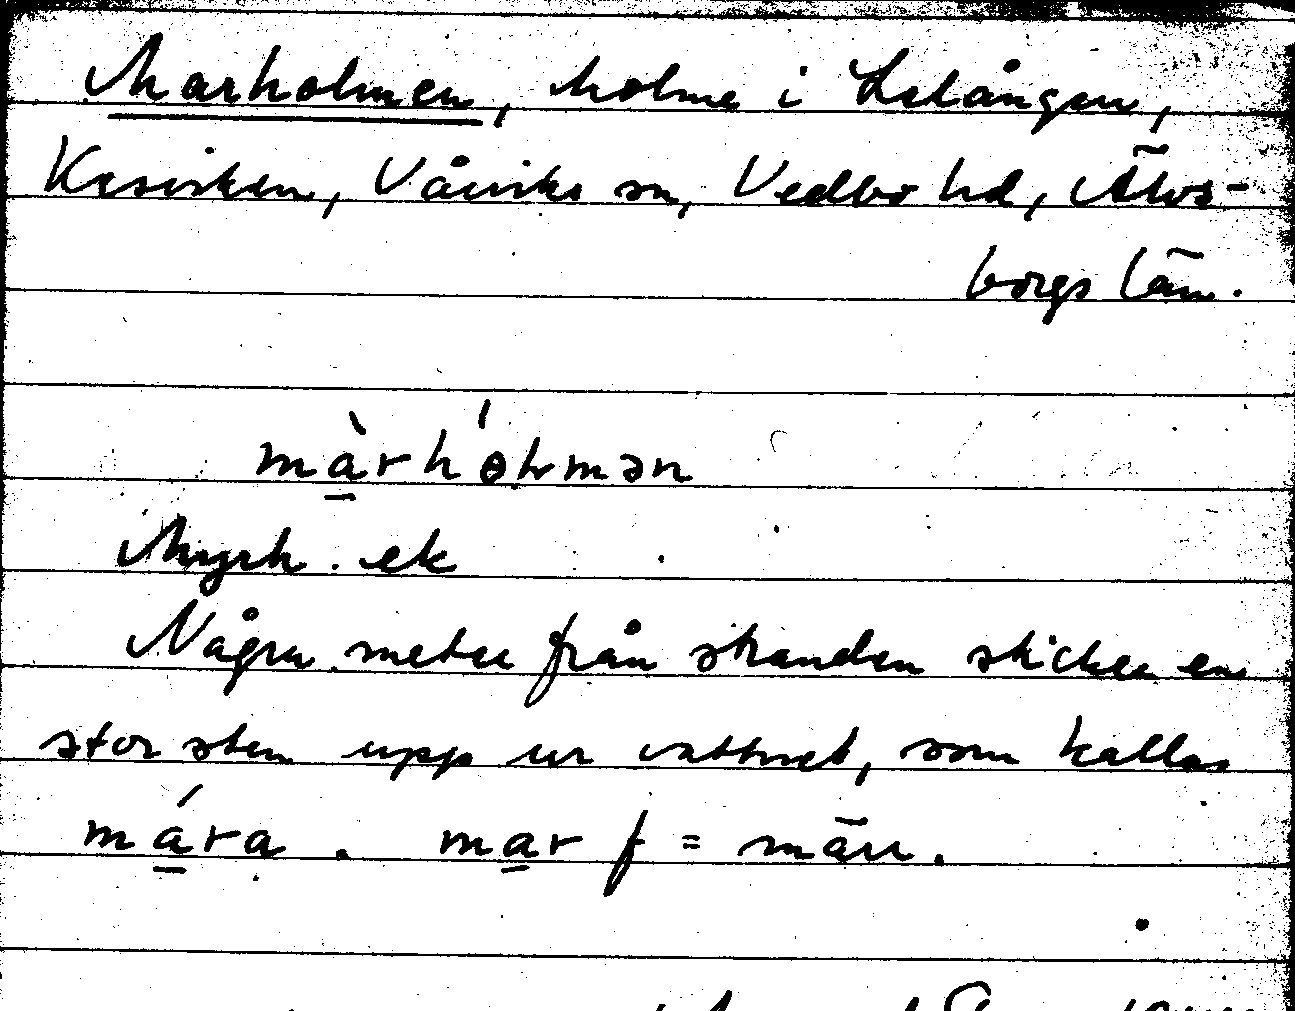 Marholmen, holme i Lelången,
Kesviken, Vårviks sn, Vedbo hd, Älvs-
borgs län.
màrhólmən
Myrh. ek
Några meter från stranden sticker en
stor sten upp ur vattnet, som kallas
mára. mar f = märr.